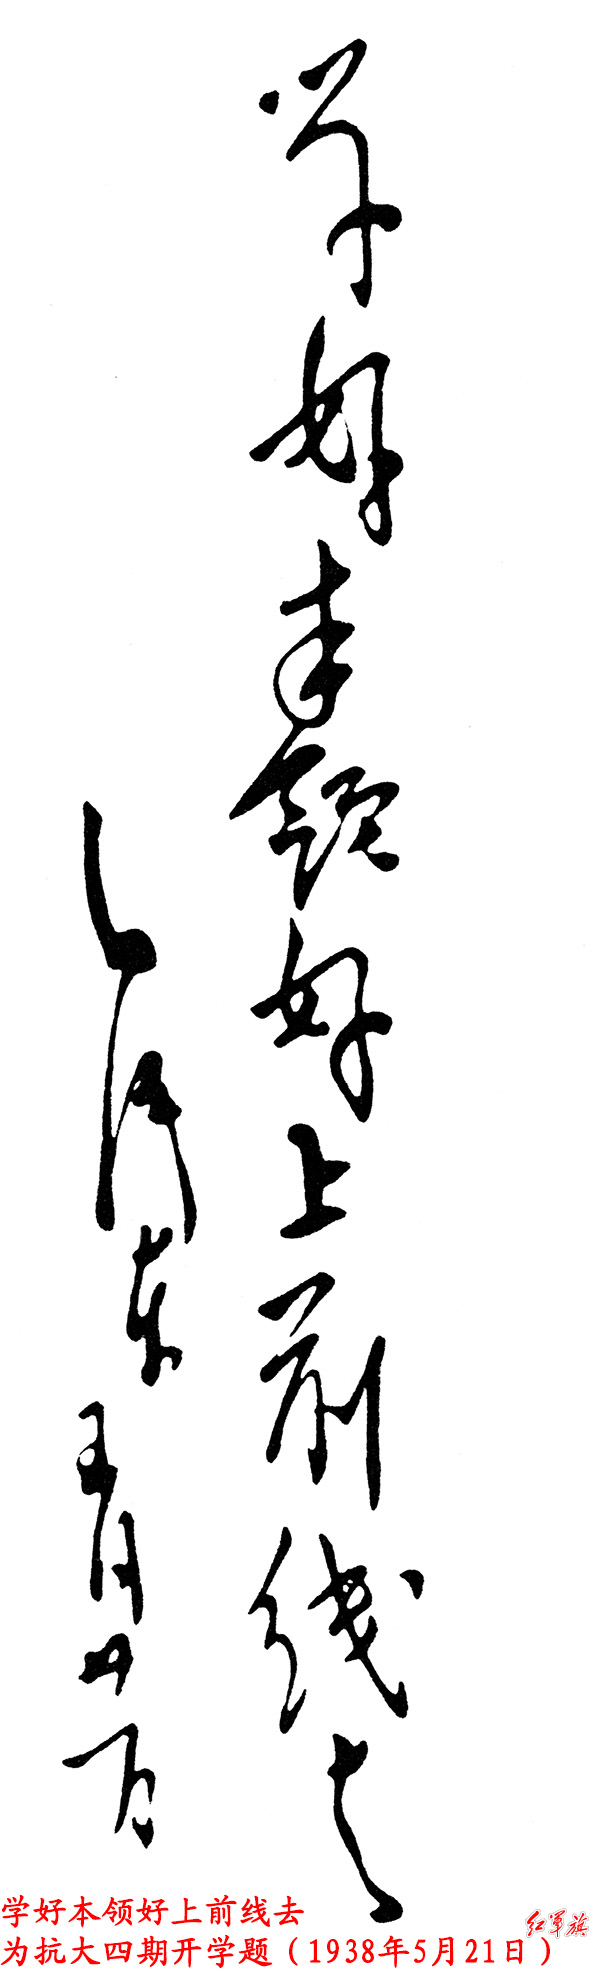 学好本领好上前线去
毛泽东
五月廿一日
学好本领好上前线去
为抗大四期开学题（1938年5月21日）
红军旗